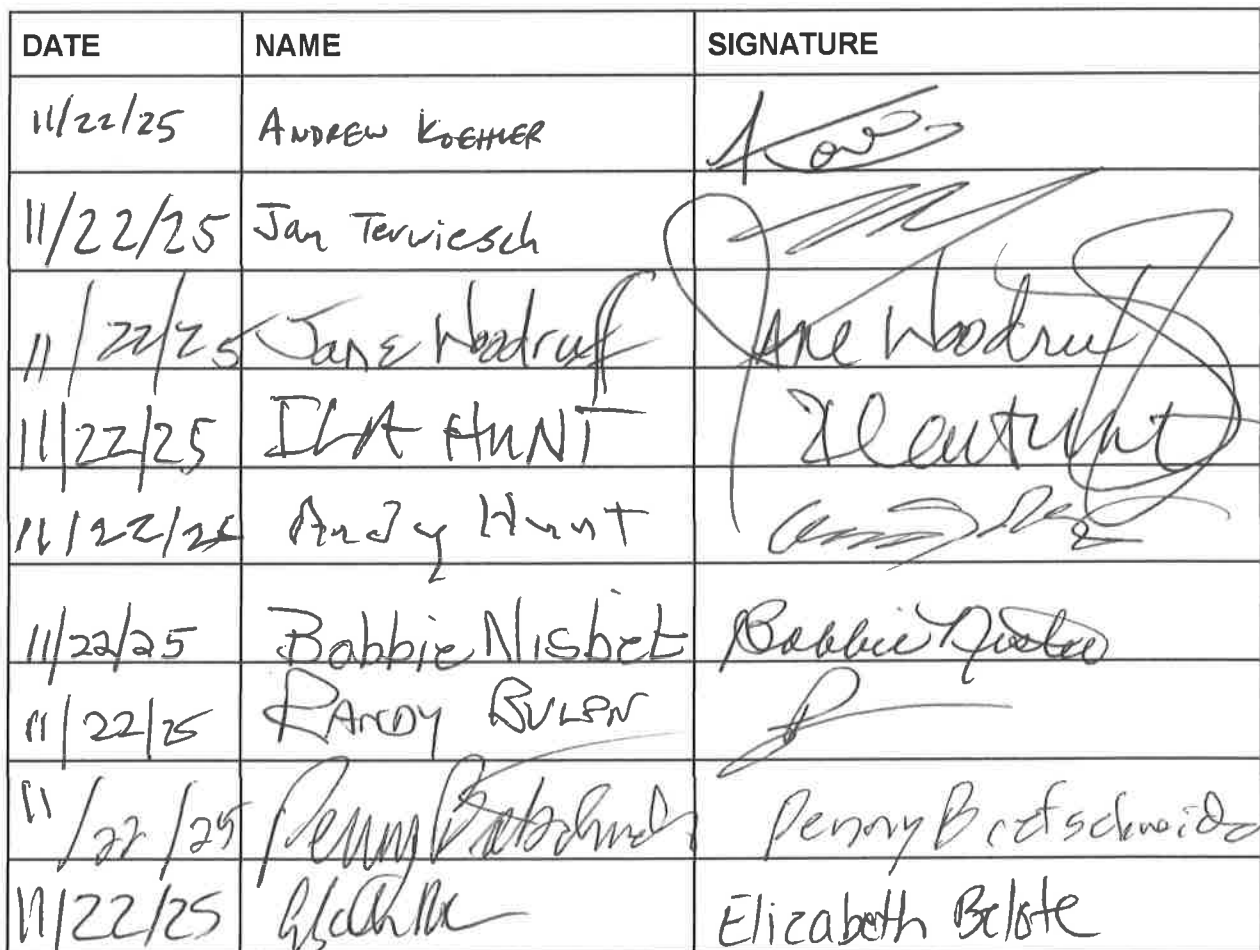 DATE NAME SIGNATURE
11/22/25 ANDREW KOEHLER
11/22/25 Jan Terwiesch
11/22/25 Jane Woodruff Jane Woodruff
11/22/25 ILA HUNT
11/22/25 Andy Hunt
11/22/25 Bobbie Nisbet Bobbie Nisbet
11/22/25 RANDY BULEN
11/22/25 Penny Penny Bretschneide
11/22/25 Elizabeth Belote